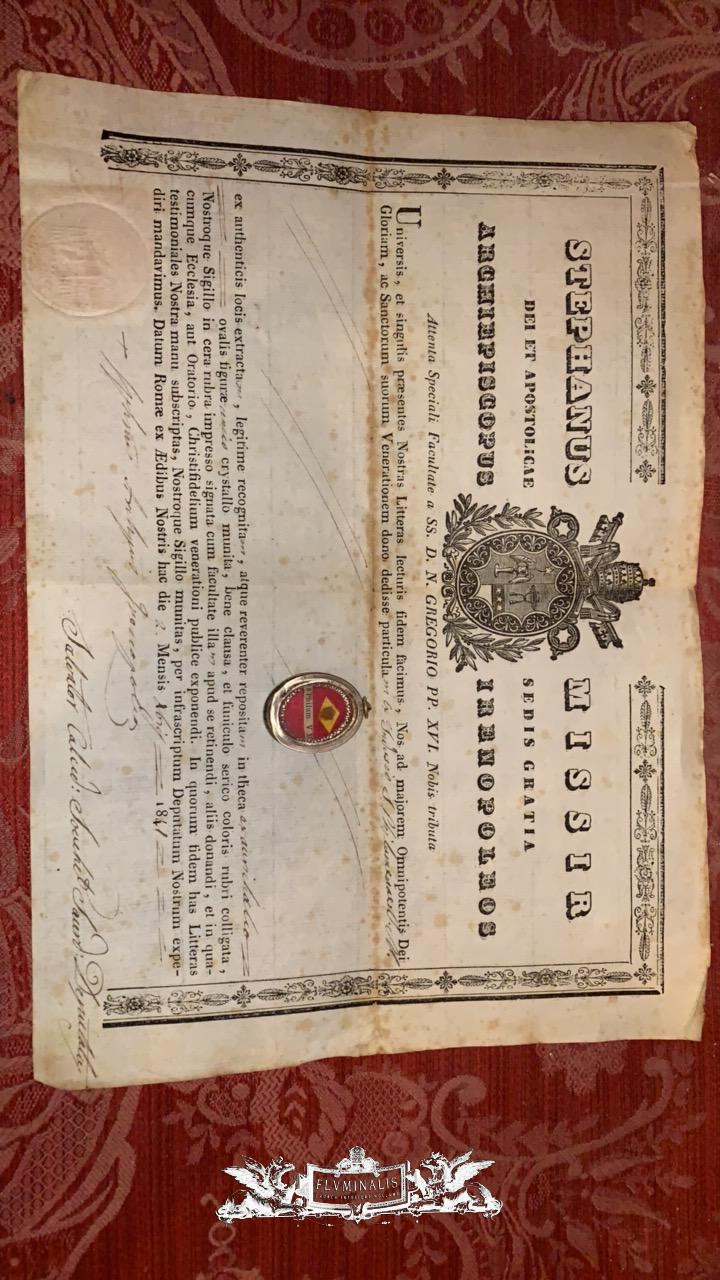 STEPHANUS MISSIR
DEI ET APOSTOLICAE SEDIS GRATIA
ARCHIEPISCOPUS IRENOPOLEOS
Attenta Speciali Facultate a SS. D. N. GREGORIO PP. XVI. Nobis tributa
Universis, et singulis præsentes Nostras Litteras lecturis fidem facimus, Nos ad majorem Omnipotentis Dei
Gloriam, ac Sanctorum suorum Venerationem dono dedisse particulam
ex authenticis locis extractam, legitime recognitam, atque reverenter repositam in theca
ovalis figuræ crystallo munita, bene clausa, et funiculo serico coloris rubri colligata,
Nostroque Sigillo in cera rubra impresso signata cum facultate illam apud se retinendi, aliis donandi, et in qua-
cumque Ecclesia, aut Oratorio, Christifidelium venerationi publice exponendi. In quorum fidem has Litteras
testimoniales Nostra manu subscriptas, Nostroque Sigillo munitas, per infrascriptum Deputatum Nostrum expe-
diri mandavimus. Datum Romæ ex Ædibus Nostris hac die 2. Mensis 1841
Salvator
FLVMINALIS